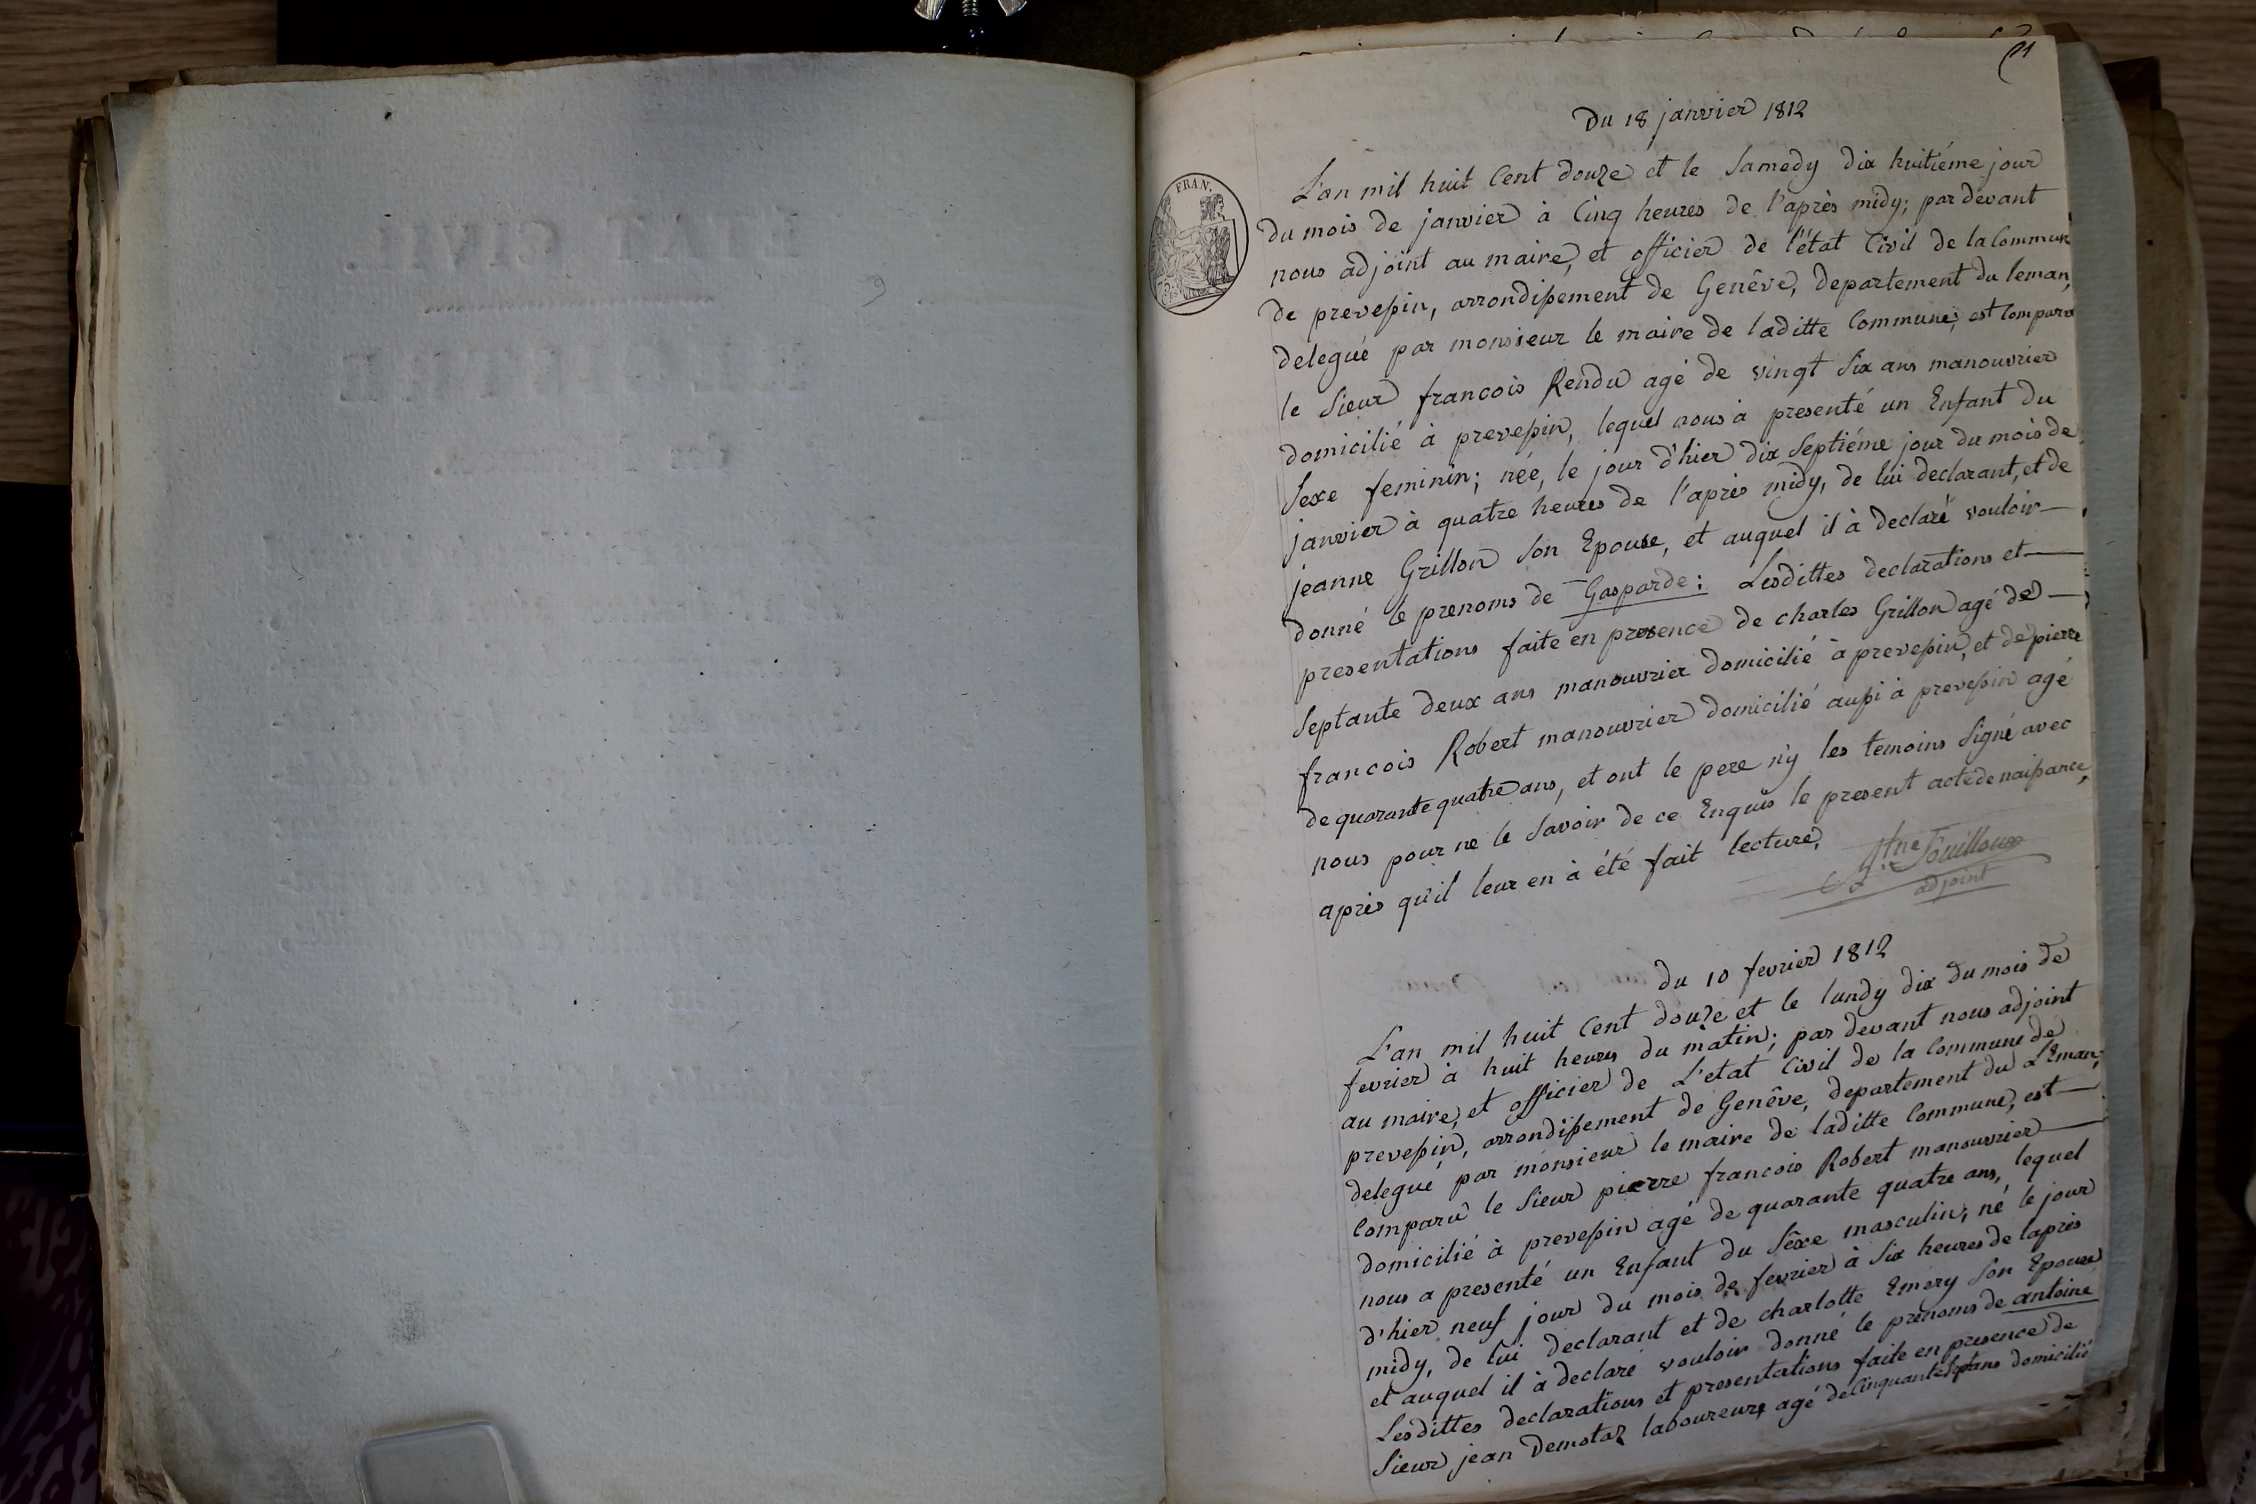 21
Du 18 janvier 1812
FRAN.
L'an mil huit Cent douze et le Samedy dix huitiéme jour
du mois de janvier à Cinq heures de l'après midy; par devant
nous adjoint au maire, et officier de l'état Civil de la Commune
de prevessin, arrondissement de Genêve, departement du leman,
delegué par monsieur le maire de laditte Commune; est Comparu
le Sieur francois Rendu agé de vingt Six ans manouvrier
domicilié à prevessin, lequel nous à presenté un Enfant du
Sexe feminin; née, le jour d'hier dix Septiéme jour du mois de
janvier à quatre heures de l'après midy, de lui declarant, et de
jeanne Grillon Son Epouse, et auquel il à declaré vouloir
donné le prenoms de Gasparde: Lesdittes declarations et
presentations faite en presence de charles Grillon agé de
Septante deux ans manouvrier domicilié à prevessin, et de pierre
francois Robert manouvrier domicilié aussi à prevessin agé
de quarante quatre ans, et ont le pere n'y les temoins Signé avec
nous pour ne le Savoir de ce Enquis le present acte de naissance,
après qu'il leur en à été fait lecture,
adjoint
du 10 fevrier 1812
L'an mil huit Cent douze et le lundy dix du mois de
fevrier à huit heures du matin; par devant nous adjoint
au maire, et officier de L'etat Civil de la Commune de
prevessin, arrondissement de Genêve, departement du LEman,
delegué par monsieur le maire de laditte Commune, est
Comparu le Sieur pierre francois Robert manouvrier
domicilié à prevessin agé de quarante quatre ans, lequel
nous a presenté un Enfant du Sêxe masculin, né le jour
d'hier neuf jour du mois de fevrier à Six heures de lapris
midy, de lui declarant et de charlotte Emery Son Epouse
et auquel il à declaré vouloir donné le prenoms de antoine
Lesdittes declarations et presentations faite en presence de
Sieur jean Demotaz laboureur, agé de Cinquante Sept ans domicilié